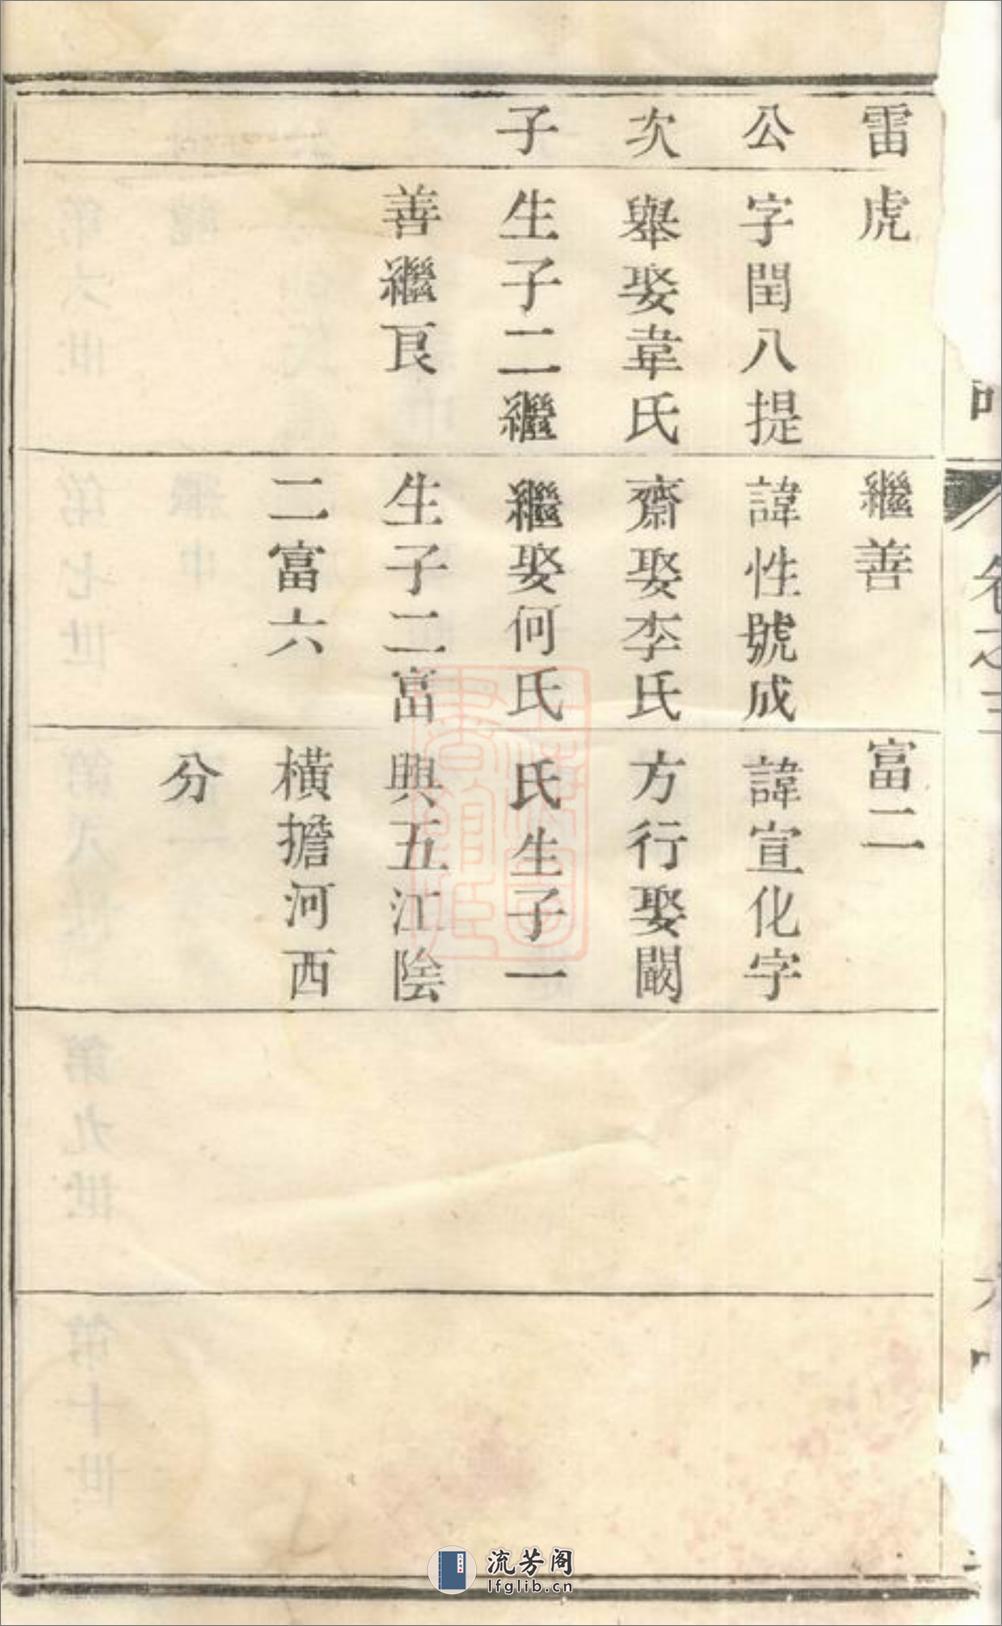 雷公次子
虎
字閏八提
舉娶韋氏
生子二繼
善繼良
繼善
諱性號成
齋娶李氏
繼娶何氏
生子二富
二富六
富二
諱宣化字
方行娶闞
氏生子一
興五江陰
橫擔河西
分
卷之三
流芳阁
lfglib.cn